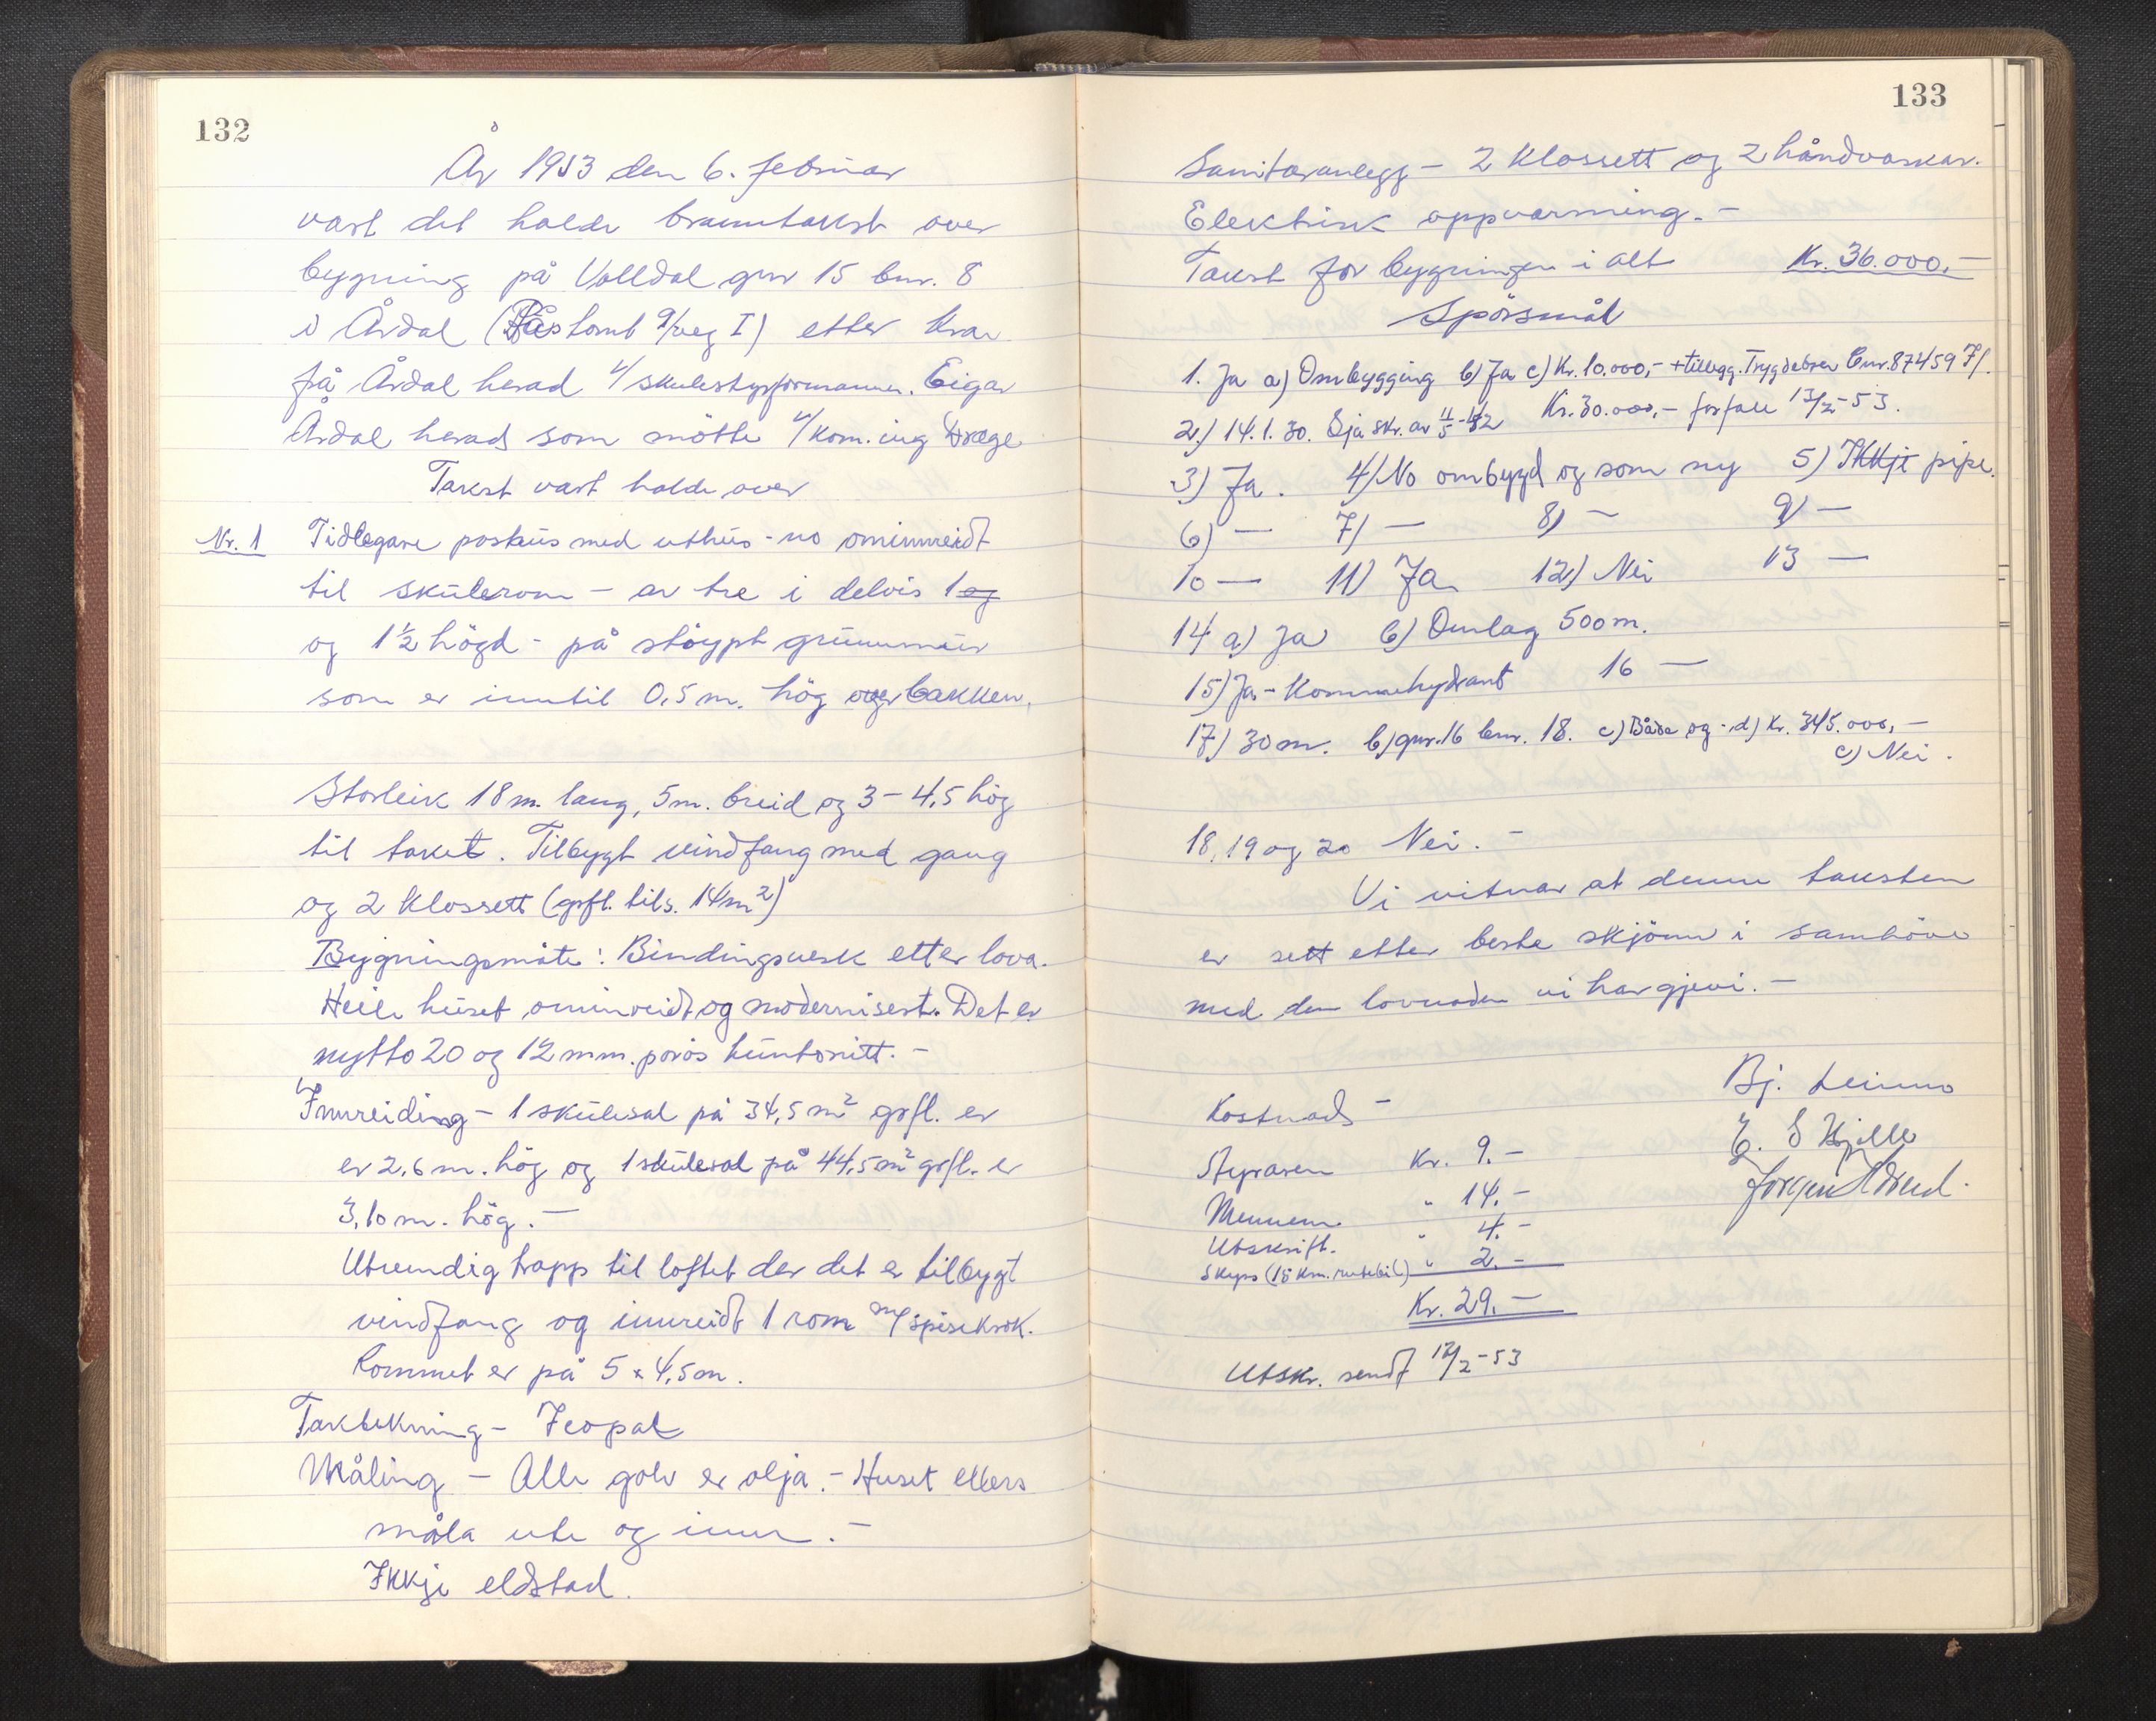 132
År 1953 den 6. februar
vart det halde branntakst over
bygning på Volldal gnr 15 bnr. 8
i Årdal (På tomt 9/veg I) etter krav
frå Årdal herad v/skulestyrformannen. Eigar
Årdal herad som møtte v/kom.ing Dræge
Takst vart halde over
Nr. 1 Tidlegare posthus med uthus - no ominnreidt
til skulerom - av tre i delvis 1 og
og 1½ högd - på stöypt grunnmur
som er inntil 0,5 m. hög over bakken.
Storleik 18 m. lang, 5 m. breid og 3 - 4,5 hög
til taket. Tilbygt vindfang med gang
og 2 klossett (grfl. tils. 14 m²)
Bygningsmåte: Bindingsverk etter lova.
Heile huset ominnreidt og modernisert. Det er
nytto 20 og 12 mm. porös huntonitt. -
Innreiding - 1 skulesal på 34,5 m² grfl. er
er 2,6 m. hög og 1 skulesal på 44,5 m² grfl. er
3,10 m. hög. -
Utvendig trapp til loftet der det er tilbygt
vindfang og innreidt 1 rom m/spisekrok.
Rommet er på 5 x 4,5 m.
Taktekning - Icopal
Måling - Alle golv er olja. - Huset ellers
måla ute og inne. -
Ikkje eldstad.
133
Sanitæranlegg - 2 klossett og 2 håndvaskar.
Elektrisk oppvarming. -
Takst for bygningen i alt Kr. 36.000,-
Spörsmål
1. Ja a) Ombygging b) Ja c) Kr. 10.000,- + tillegg. Trygdebrev bnr. 87459 7/.
2.) 14.1.30. Sjå skr. av 11/5-52 Kr. 30.000,- forfall 13/2-53.
3) Ja. 4) No ombygd og som ny 5) Ikkje pipe.
6) - 7) - 8) - 9) -
10 - 11) Ja 12) Nei 13 -
14 a) Ja b) Omlag 500 m.
15) Ja - Kommunehydrant 16 -
17) 30 m. b) gnr. 16 bnr. 18. c) Båda og - d) Kr. 345.000,-
e) Nei.
18, 19 og 20 Nei. -
Vi vitnar at denne taksten
er sett etter beste skjönn i samhöve
med den lovnaden vi har gjevi. -
Bj. Leirmo
Kostnad -
E. S Hjelle
Styraren Kr. 9.-
Jørgen
Mennene " 14.-
Utskrift. " 4.-
Skyss (15 km. rutebil) " 2.-
Kr. 29.-
Utskr. sendt 12/2-53